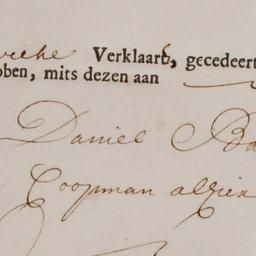 Verklaart, gecedeert
oben, mits dezen aan
Daniel Ba
Coopman alhier